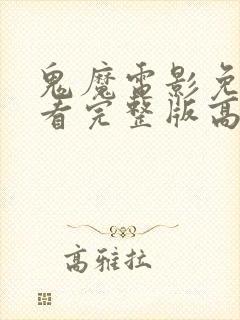 鬼魔雷影免
看完整版高
高雅拉